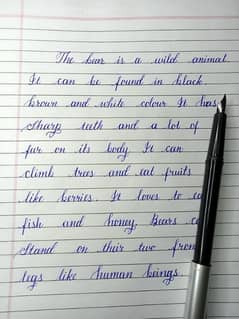 The bear is a wild animal.
It can be found in black
brown and white colour It has
sharp teeth and a lot of
fur on its body It can
climb trees and eat fruits
like berries. It loves to
fish and honey, Bears
stand on their two
legs like human beings